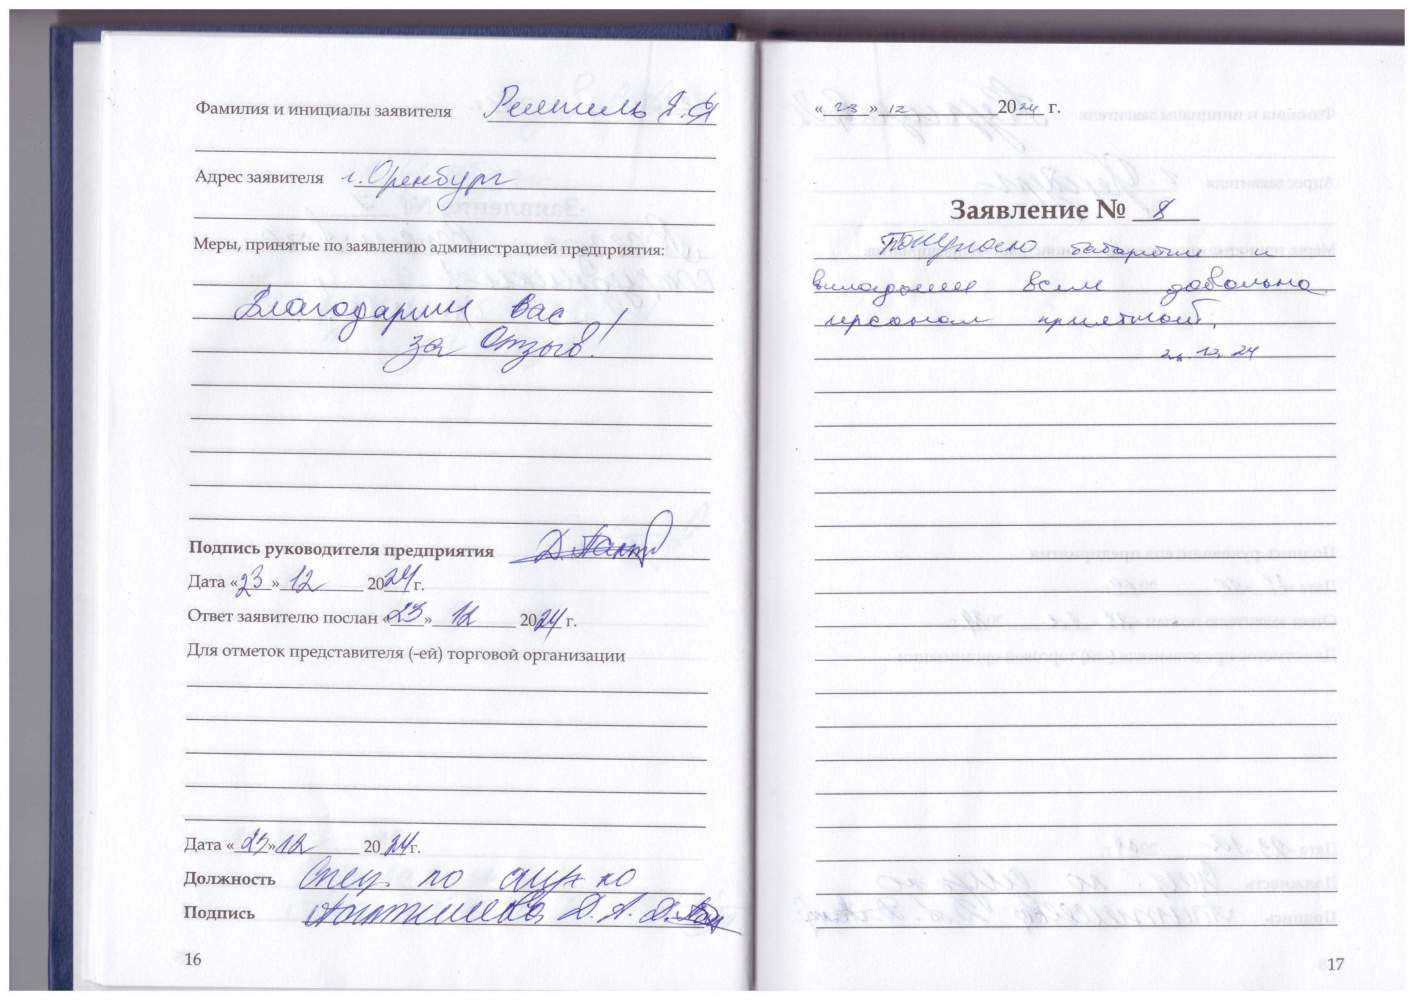 Фамилия и инициалы заявителя
Адрес заявителя г. Оренбург
Меры, принятые по заявлению администрацией предприятия:
Благодарим вас
за отзыв!
Подпись руководителя предприятия
Дата «23» 12 2024 г.
Ответ заявителю послан «23» 12 2024 г.
Для отметок представителя (-ей) торговой организации
Дата «23» 12 2024 г.
Должность Спец по
Подпись Д. А.
16
«23» 12 2024 г.
Заявление № 8
Покупаю батарейки и
вкладыши всем довольна
персонал
12. 24
17